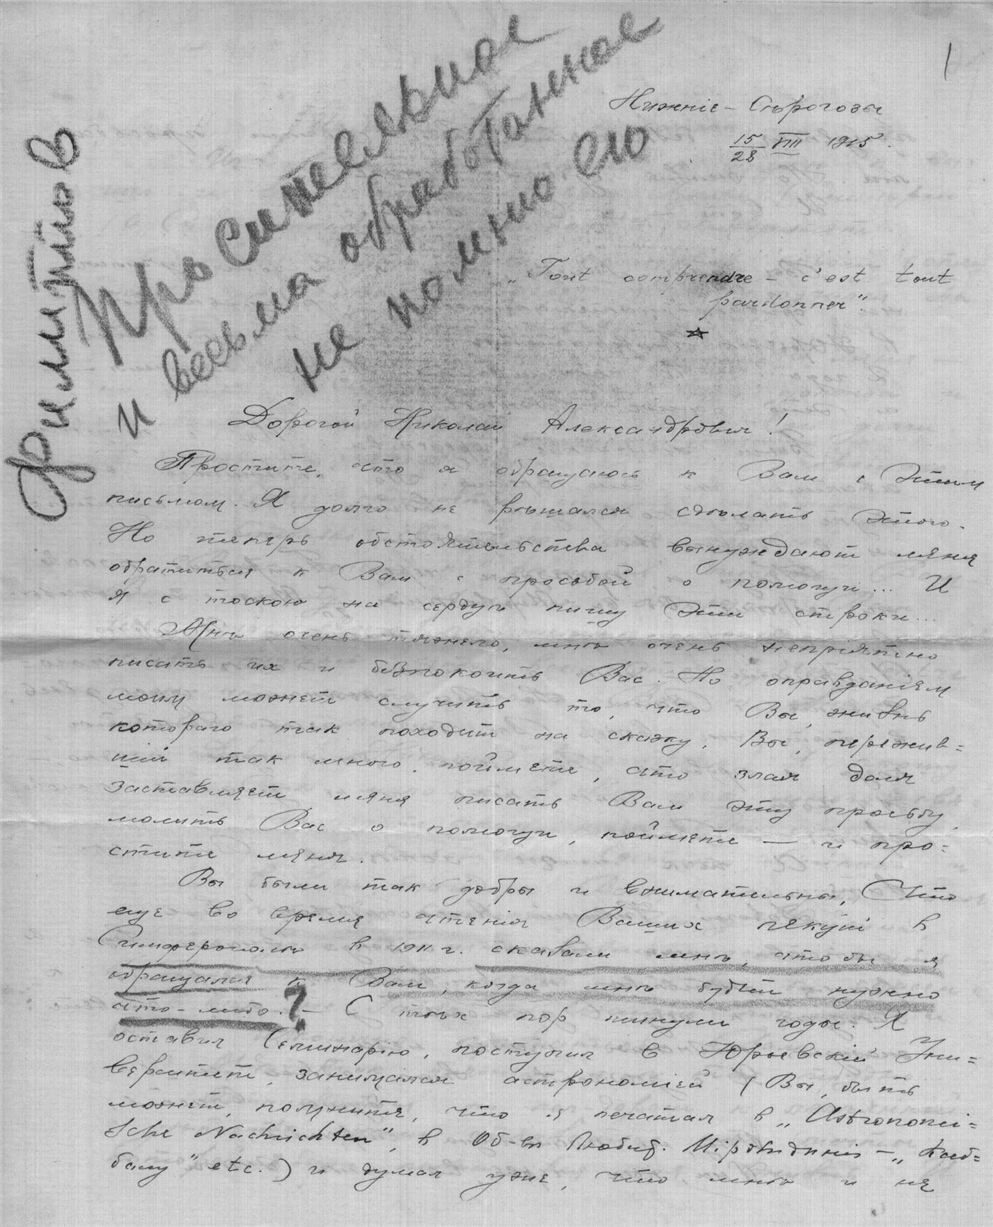 1
Филиппов
Просительное
и весьма обработанное
не помню его
Нижніе-Сѣрогозы
15/28 VIII 1915.
„Tout comprendre — c'est tout
pardonner"
Дорогой Николай Александрович!
Простите, что я обращаюсь к Вам с этим
письмом. Я долго не рѣшался сдѣлать этого.
Но теперь обстоятельства вынуждают меня
обратиться к Вам с просьбой о помощи... И
я с тоскою на сердцѣ пишу эти строки...
Мнѣ очень тяжело, мнѣ очень непріятно
писать их и безпокоить Вас. Но оправданіем
моим может служить то, что Вы, жизнь
котораго так походит на сказку, Вы, пережив=
шій так много, поймете, что злая доля
заставляет меня писать Вам эту просьбу,
молить Вас о помощи, поймете — и про=
стите меня.
Вы были так добры и внимательны, что
еще во время чтенія Ваших лекцій в
Симферополѣ в 1911 г. сказали мнѣ, чтобы я
обращался к Вам, когда мнѣ будет нужно
что-либо. ? — С тѣх пор минули годы. Я
оставил Семинарію, поступил в Юрьевскій Уни=
верситет, занимался астрономіей (Вы, быть
может, помните, что я печатал в „Astronomi=
sche Nachrichten", в Об-вѣ Любит. Міровѣдѣнія —
" etc.) и думал уже, что мнѣ и не